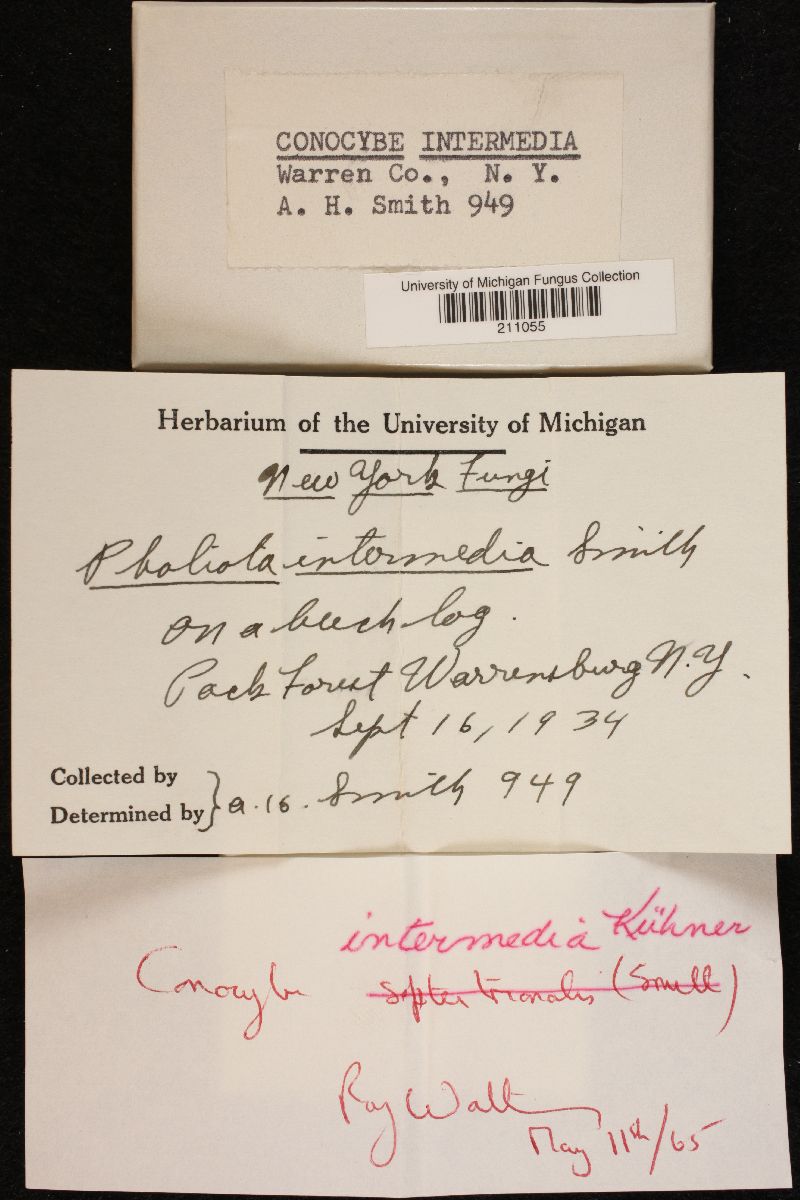 CONOCYBE INTERMEDIA
Warren Co., N. Y.
A. H. Smith 949
University of Michigan Fungus Collection
211055
Herbarium of the University of Michigan
New York Fungi
Pholiota intermedia Smith
on a beech log.
Pack Forest Warrensburg N.Y.
Sept 16, 1934
Collected by
Determined by } A. H. Smith 949
intermedia Kühner
Conocybe septentrionalis (Smith)
Roy Watling
May 11th/65